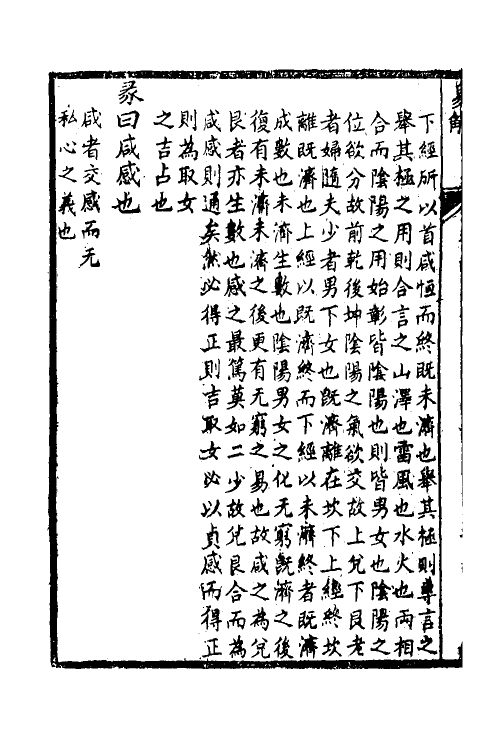 下經所以首咸恒而終既未濟也舉其極則專言之
舉其極之用則合言之山澤也雷風也水火也兩相
合而陰陽之用始彰皆陰陽也則皆男女也陰陽之
位欲分故前乾後坤陰陽之氣欲交故上兌下艮老
者婦隨夫少者男下女也既濟離在坎下上經終坎
離既濟也上經以既濟終而下經以未濟終者既濟
成數也未濟生數也陰陽男女之化无窮既濟之後
復有未濟未濟之後更有无窮之易也故咸之為兌
艮者亦生數也感之最篤莫如二少故兌艮合而為
咸感則通矣然必得正則吉取女必以貞感而得正
則為取女
之吉占也
彖曰咸感也
咸者交感而无
私心之義也